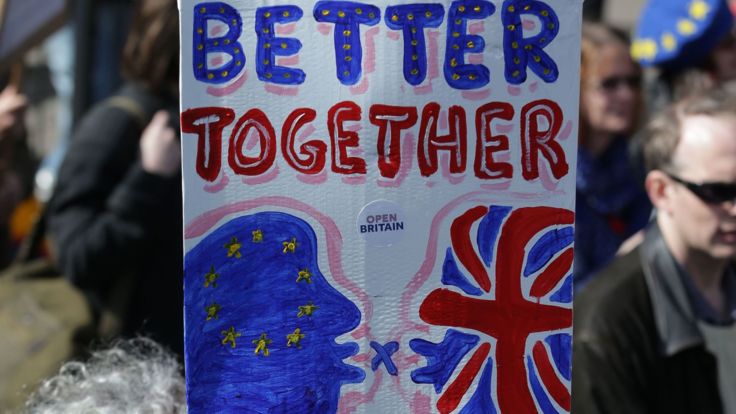 BETTER
TOGETHER
OPEN
BRITAIN
x